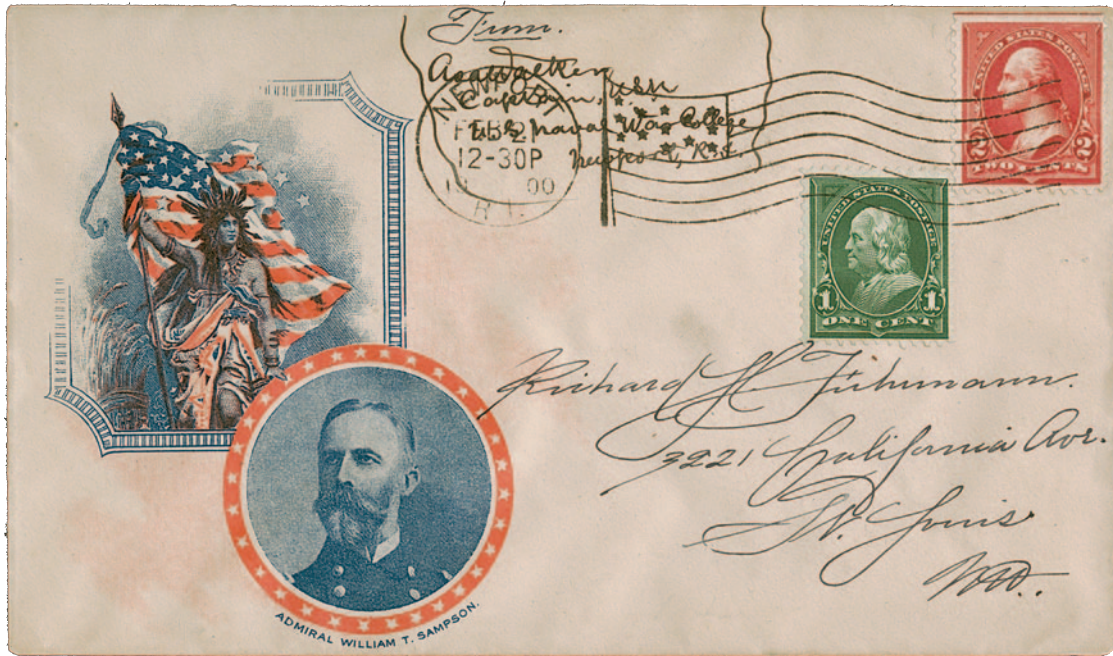 From.
Asa Walker
Captain, USN
U.S. Naval War College
Newport, R.I.
NEWPORT
FEB 21
12-30P
19 00
R.I.
UNITED STATES POSTAGE
2 2
TWO CENTS
UNITED STATES POSTAGE
1 1
ONE CENT
Richard H Fuhrmann.
3221 California Ave.
St. Louis
Mo.
ADMIRAL WILLIAM T. SAMPSON.